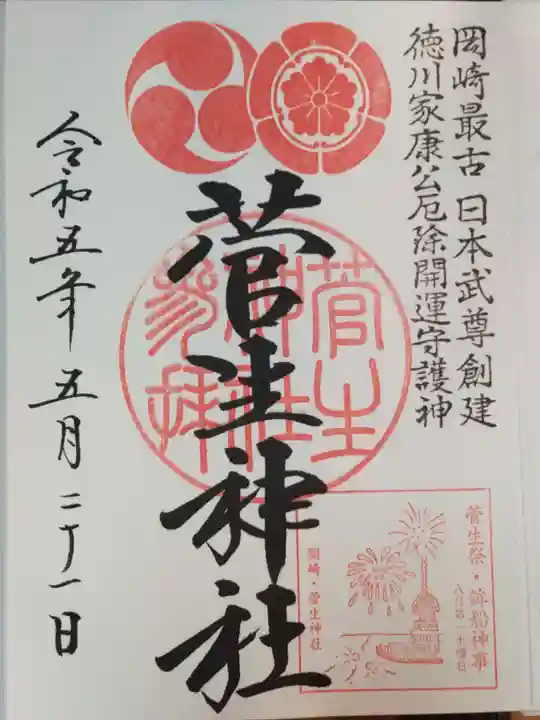 岡崎最古 日本武尊創建
徳川家康公厄除開運守護神
菅生神社
菅生
神社
参拝
令和五年五月二十一日
菅生祭・鉾船神事
八月第一土曜日
岡崎・菅生神社